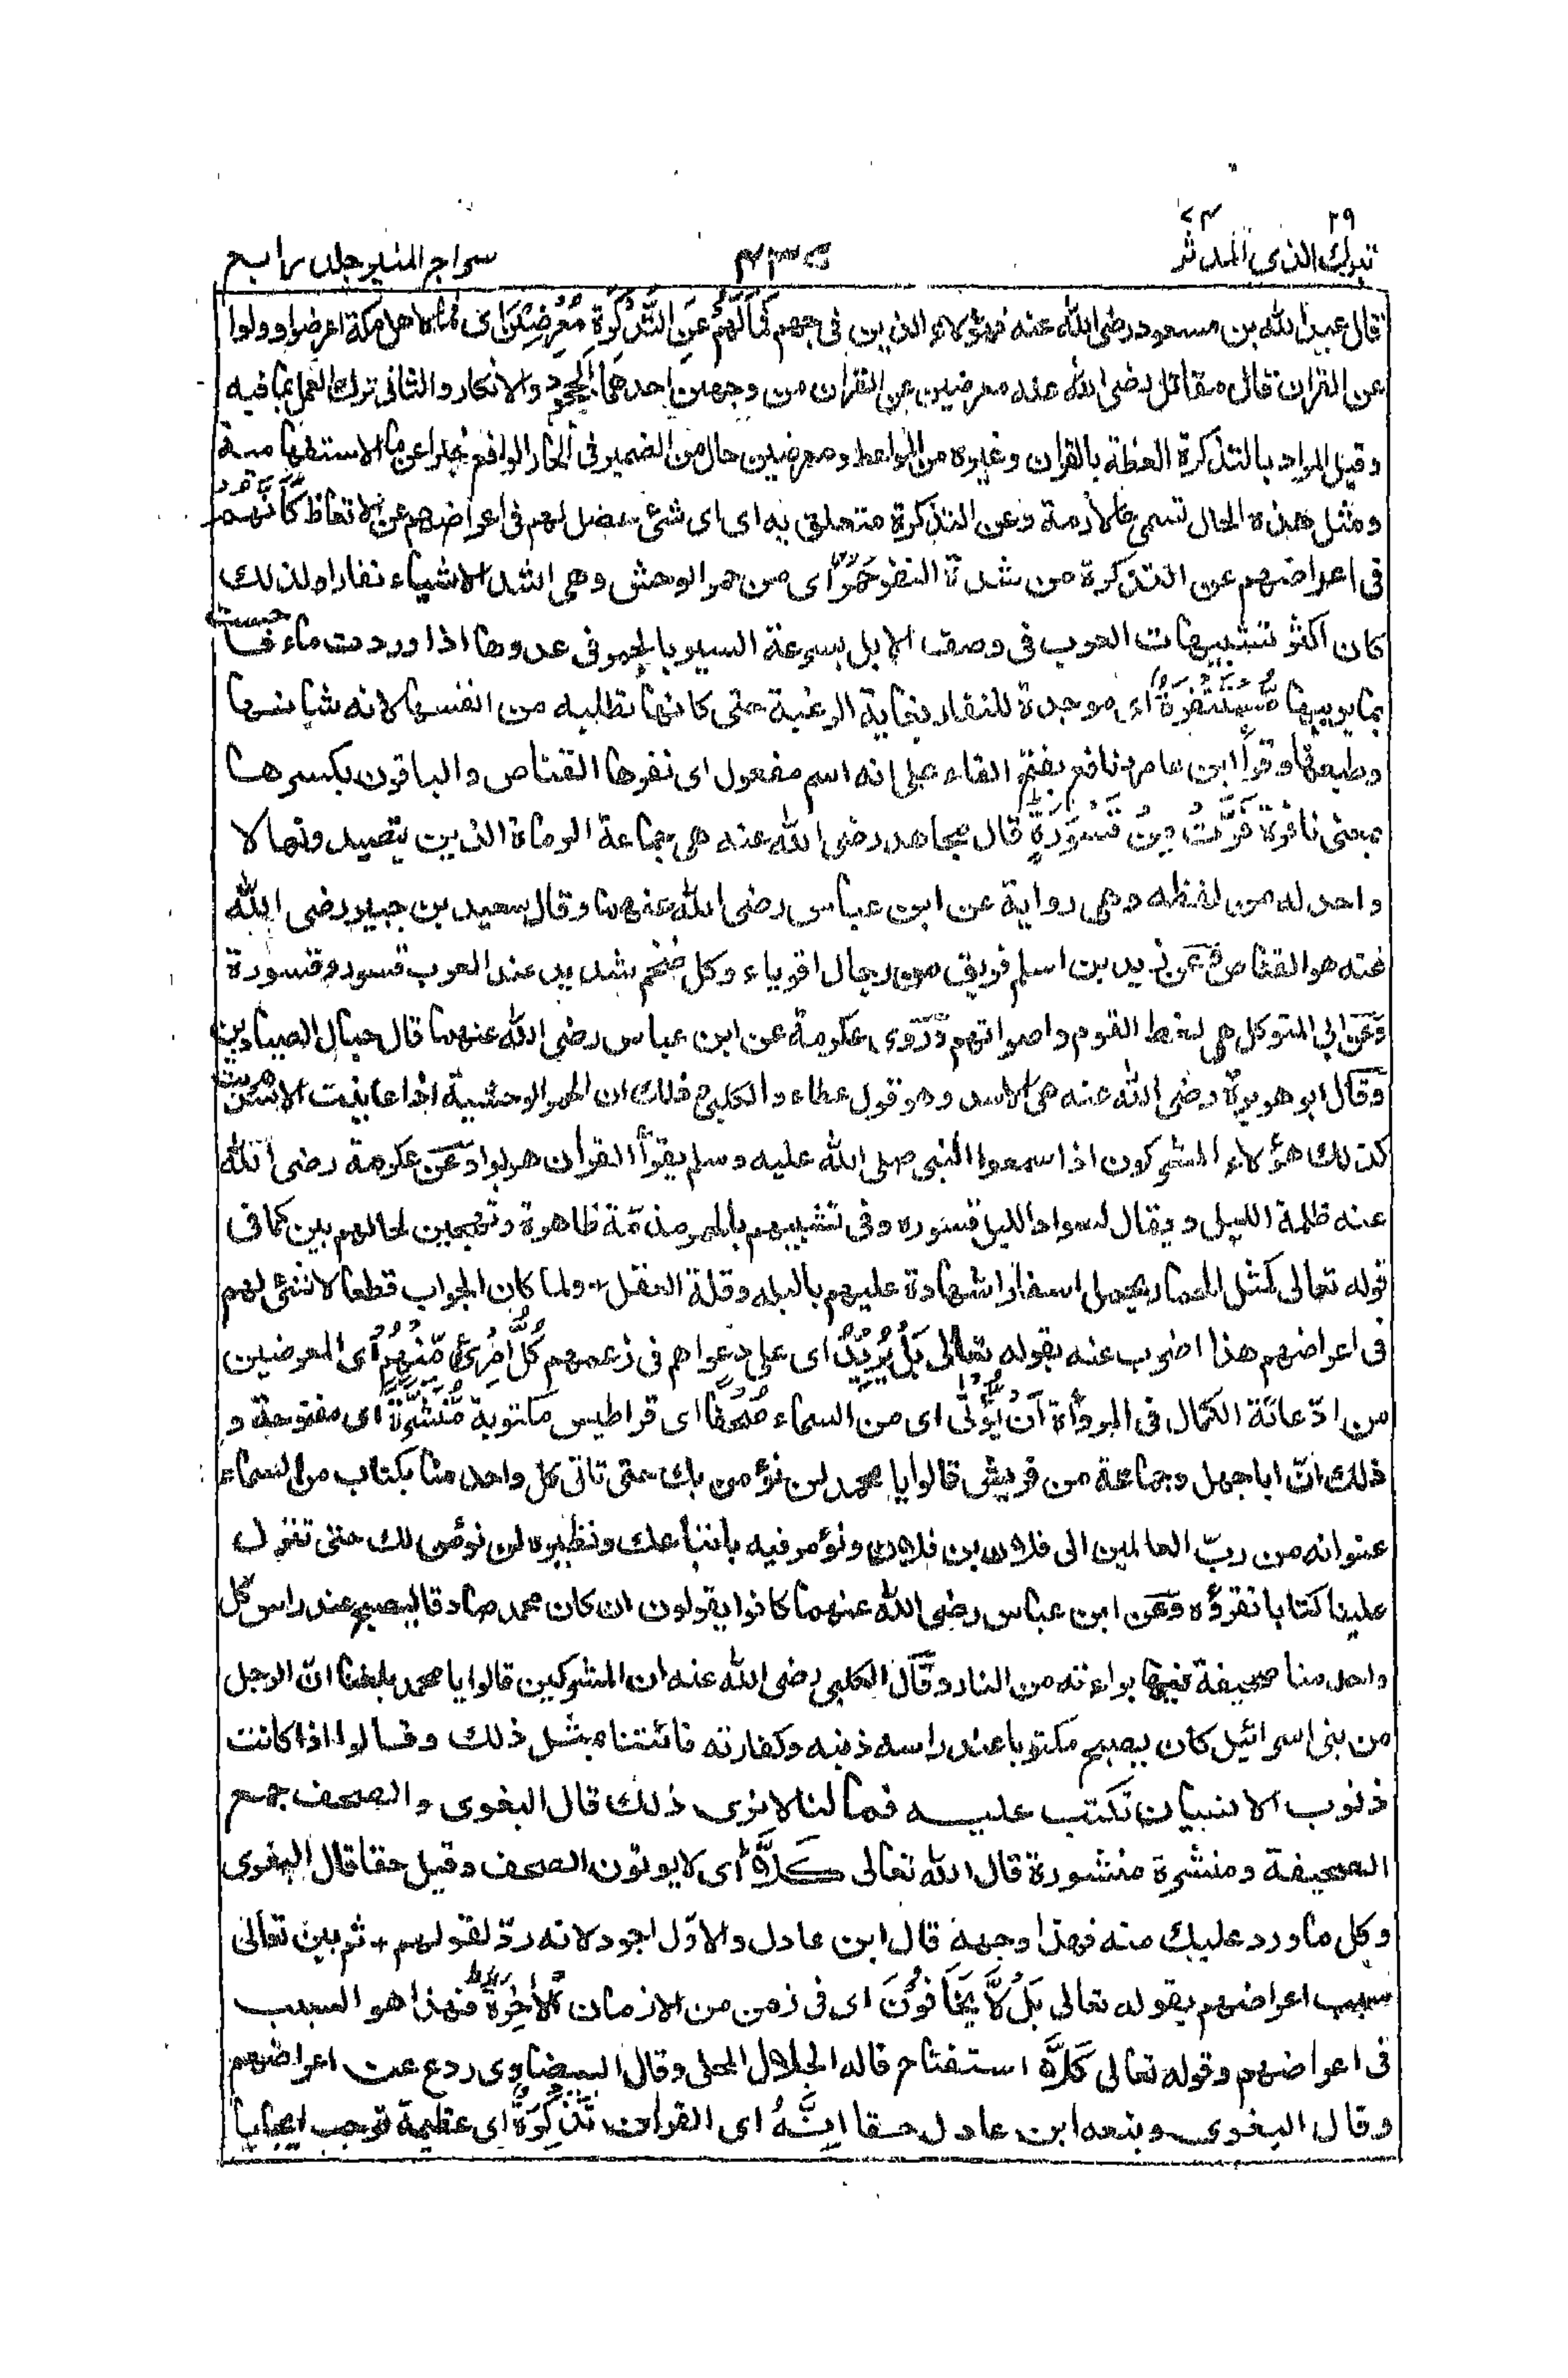 ٢٩ ٧٤
تبٰرك الذى المدثر ٤٣٥ سراج المنير جلد رابع
قال عبد الله بن مسعود رضى الله عنه فهؤلاء الذين فى جهنم فَمَا لَهُمْ عَنِ التَّذْكِرَةِ مُعْرِضِيْنَ اى فما لاهل مكة اعرضوا وولوا
عن القران قال مقاتل رضى الله عنه معرضين عن القران من وجهين احدهما الجحود والانكار والثانى ترك العمل بما فيه
وقيل المراد بالتذكرة العظة بالقران وغيره من المواعظ ومعرضين حال من الضمير فى الجار الواقع خبرا عن ما الاستفهامية
ومثل هذه الحال تسمى حالا لازمة وعن التذكرة متعلق به اى اى شئ حصل لهم فى اعراضهم عن الاتعاظ كَاَنَّهُمْ
فى اعراضهم عن التذكرة من شدة النفر حُمُرٌ اى من حمر الوحش وهى اشد الاشياء نفارا ولذلك
كان اكثر تشبيهات العرب فى وصف الابل بسرعة السير بالحمر فى عدوها اذا وردت ماء فحست
بما يريبها مُّسْتَنْفِرَةٌ اى موجدة للنفار بغاية الرغبة حتى كانها تطلبه من انفسها لانه شانها
وطبعها وقرأ ابن عامر ونافع بفتح الفاء على انه اسم مفعول اى نفرها القناص والباقون بكسرها
بمعنى نافرة فَرَّتْ مِنْ قَسْوَرَةٍ قال مجاهد رضى الله عنه هى جماعة الرماة الذين يتصيدونها لا
واحد له من لفظه وهى رواية عن ابن عباس رضى الله عنهما وقال سعيد بن جبير رضى الله
عنه هو القناص وعن زيد بن اسلم فريق من رجال اقوياء وكل ضخم شديد عند العرب قسور وقسورة
وعن ابى المتوكل هى لغط القوم واصواتهم وروى عكرمة عن ابن عباس رضى الله عنهما قال حبال الصيادين
وقال ابو هريرة رضى الله عنه هى الاسد وهو قول عطاء والكلبى وذلك ان الحمر الوحشية اذا عاينت الاسد هربت
كذلك هؤلاء المشركون اذا سمعوا النبى صلى الله عليه وسلم يقرأ القران هربوا وعن عكرمة رضى الله
عنه ظلمة الليل ويقال لسواد الليل قسوره وفى تشبيههم بالحمر مذمّة ظاهرة وتهجين لحالهم بين كما فى
قوله تعالى كمثل الحمار يحمل اسفارا شهادة عليهم بالبله وقلة العقل ولما كان الجواب قطعا لا شئ لهم
فى اعراضهم هذا اضرب عنه بقوله تعالى بَلْ يُرِيْدُ اى على دعواهم فى زعمهم كُلُّ امْرِئٍ مِّنْهُمْ اى المعرضين
من ادّعائه الكمال فى المروأة اَنْ يُّؤْتٰى اى من السماء صُحُفًا اى قراطيس مكتوبة مُّنَشَّرَةً اى مفتوحة و
ذلك انّ ابا جهل وجماعة من قريش قالوا يا محمد لن نؤمن بك حتى تاتى كل واحد منا بكتاب من السماء
عنوانه من ربّ العالمين الى فلان بن فلان ونؤمر فيه باتباعك ونظيره لن نؤمن لك حتى تنزل
علينا كتابا نقرؤه وعن ابن عباس رضى الله عنهما كانوا يقولون ان كان محمد صادقا ليصبح عند راس كل
واحد منا صحيفة فيها براءته من النار وقال الكلبى رضى الله عنه ان المشركين قالوا يا محمد بلغنا انّ الرجل
من بنى اسرائيل كان يصبح مكتوبا عند راسه ذنبه وكفارته فائتنا مبثل ذلك وقالوا اذا كانت
ذنوب الانسان تكتب عليه فما لنا لا نرى ذلك قال البغوى والصحف جمع
الصحيفة ومنشرة منشورة قال الله تعالى كَلَّا اى لا يوتون الصحف وقيل حقا قال البغوى
وكل ما ورد عليك منه فهذا وجهه قال ابن عادل والاوّل اجود لانه ردّ لقولهم ثم بين تعالى
سبب اعراضهم بقوله تعالى بَلْ لَّا يَخَافُوْنَ اى فى زمن من الازمان الْاٰخِرَةَ فهذا هو السبب
فى اعراضهم وقوله تعالى كَلَّا استفتاح قاله الجلال المحلى وقال البيضاوى ردع عن اعراضهم
وقال البغوى وتبعه ابن عادل حقا اِنَّهٗ اى القران تَذْكِرَةٌ اى عظيمة توجب ايجابا